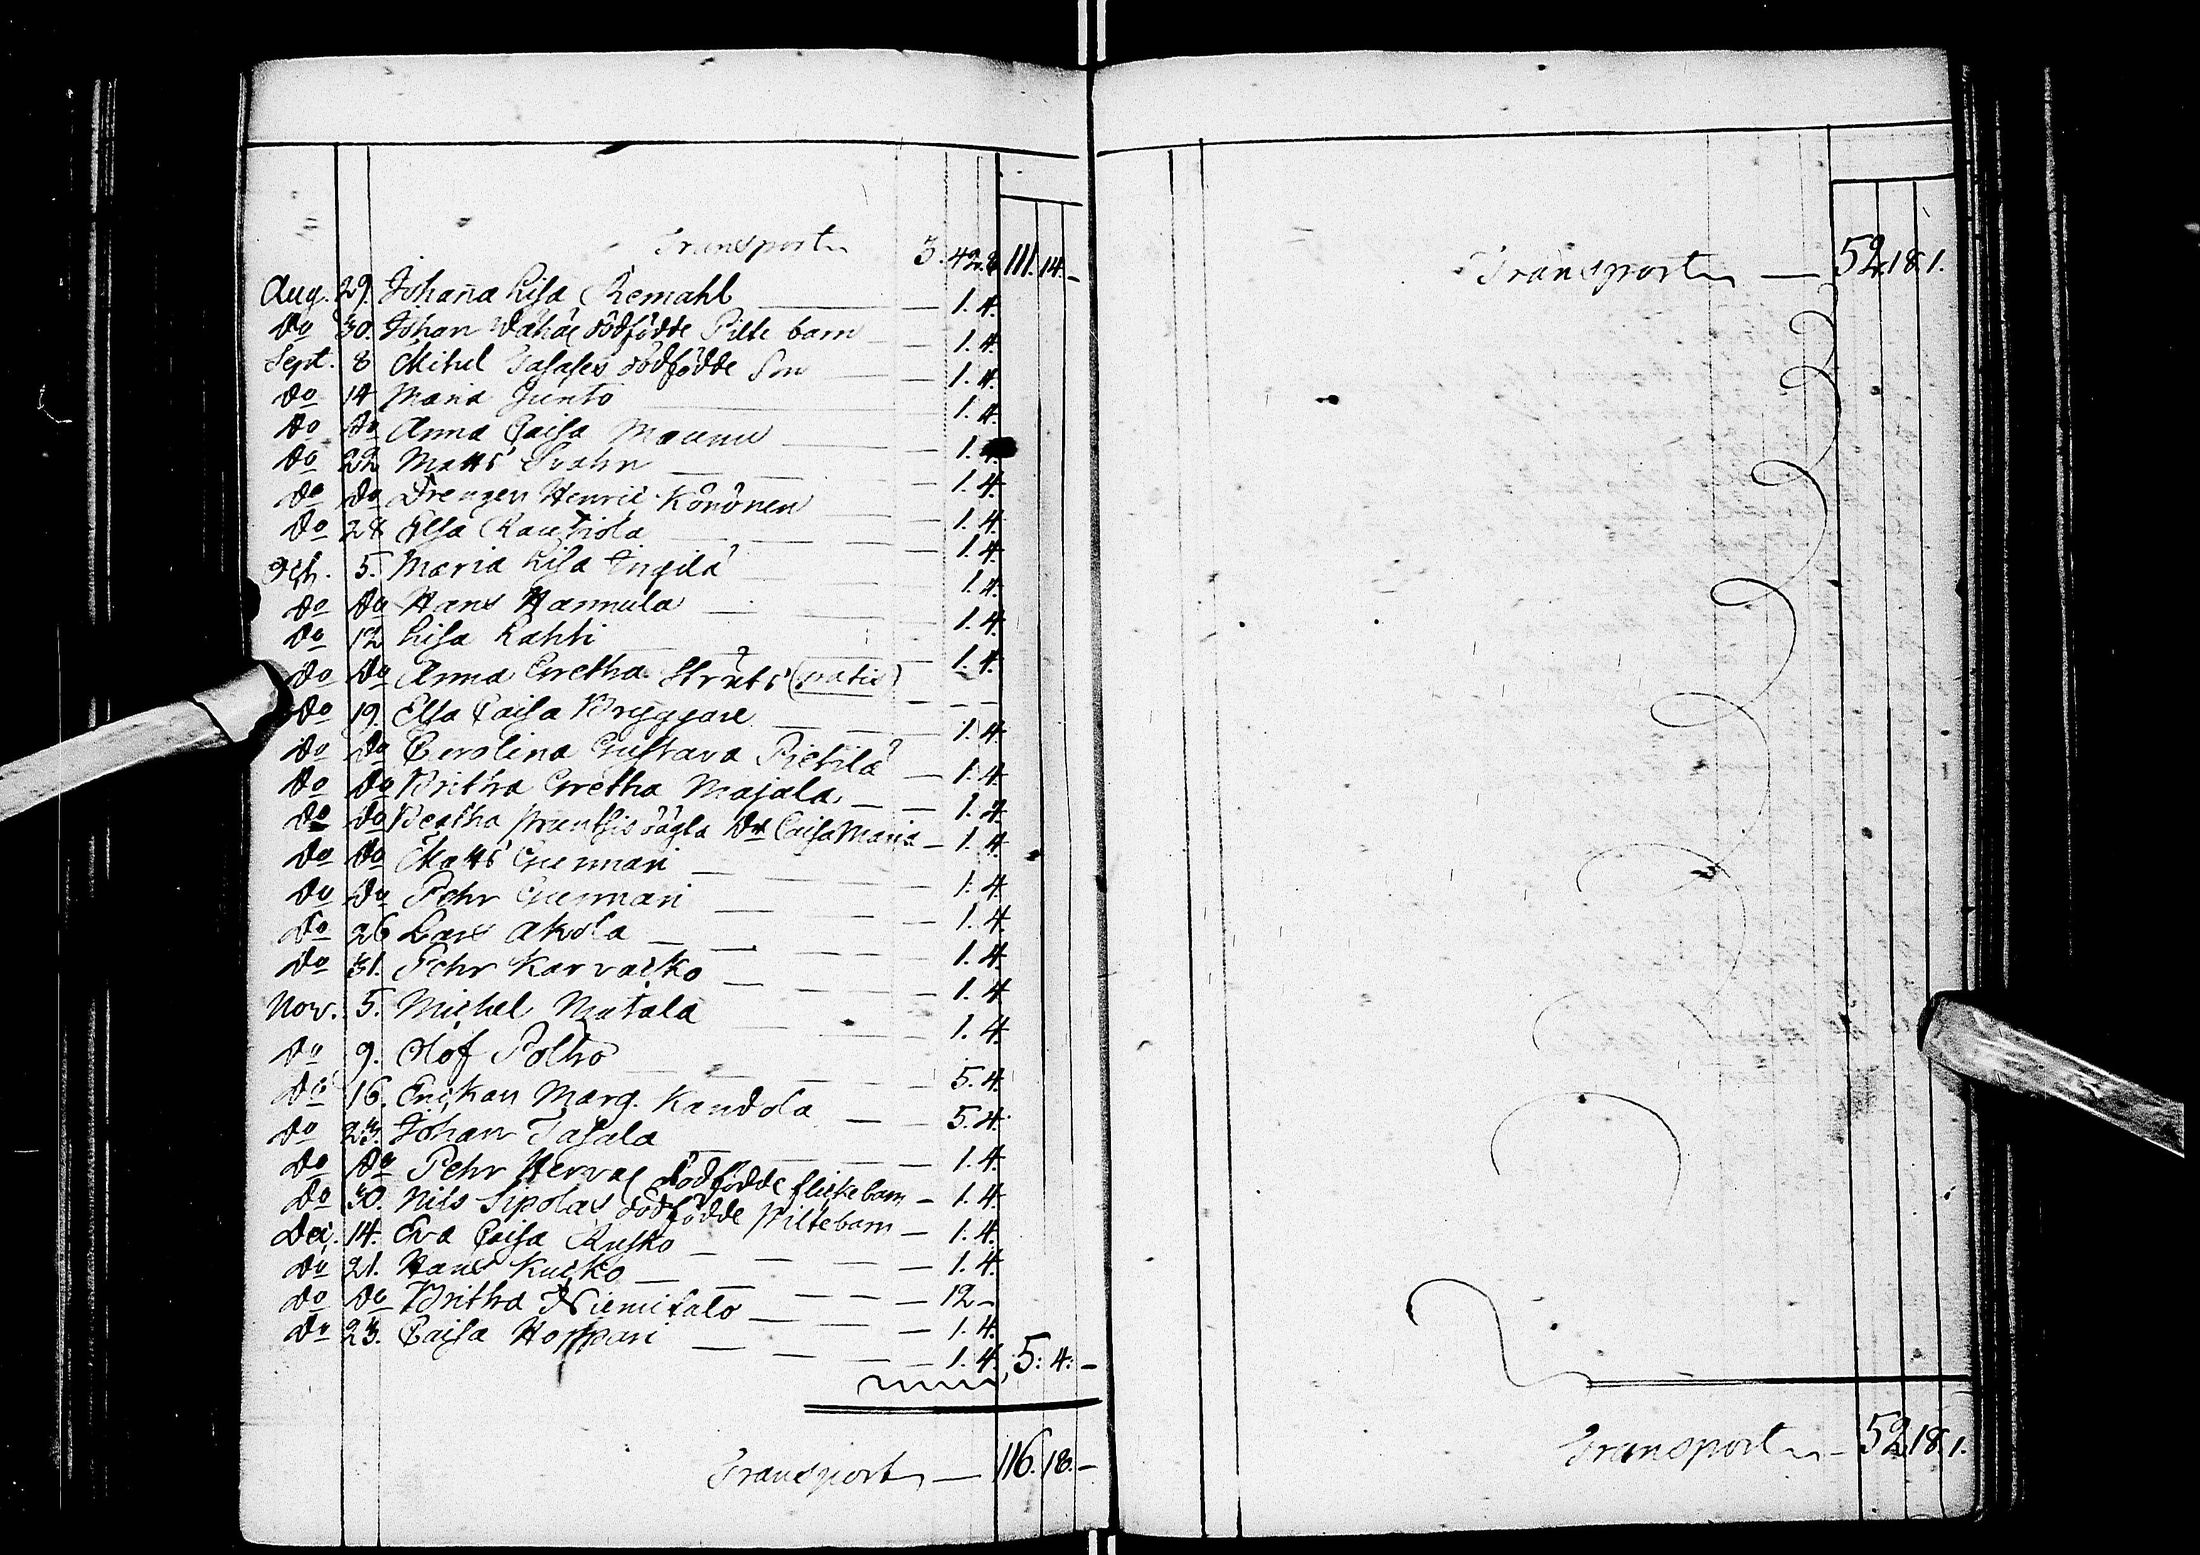 Transport 3. 42. 8 111. 14. -
Aug. 29. Johanna Lisa Remahl 1. 4.
Do 30. Johan Vähäs dödfödde Pilte barn 1. 4.
Sept. 8 Mikel Jasafes dödfödde Son 1. 4.
Do 14 Maria Junto 1. 4.
Do Do Anna Caisa Maunu 1. 4.
Do 22 Matts Svahn 1. 4.
Do Do Drengen Henric Könönen 1. 4.
Do 28 Elsa Rautiola 1. 4.
5. Maria Lisa Ingilä 1. 4.
Do Do Hans Hannula 1. 4.
Do 12 Lisa Lahti 1. 4.
Do Do Anna Gretha (gratis) - - -
Do 19. Elsa Caisa Bryggare 1. 4.
Do Do Carolina Gustava Pietilä 1. 4.
Do Do Britha Gretha Majala 1. 4.
Do Do Beatha oägta Dr Caisa Maria 1. 4.
Do Do Matts Gunnari 1. 4.
Do Do Pehr Gunnari 1. 4.
Do 26 Lars Akola 1. 4.
Do 31. Pehr Karvaisko 1. 4.
Nov. 5. Michel Matala 1. 4.
Do 9. Olof Polho 5. 4.
Do 16. Enkan Marg. Kandola 5. 4.
Do 23. Johan Tasala 1. 4.
Do Do Pehr Hervas dödfödde flickebarn 1. 4.
Do 30. Nils Sipolas dödfödde piltebarn 1. 4.
Dec. 14. Eva Caisa Rusko 1. 4.
Do 21. Hans Kuisko 12 -
Do Do Britha Niemitalo 1. 4.
Do 23. Caisa Hoppari 1. 4. 5: 4: -
Transport 116. 18. -
Transport 52. 18. 1.
Transport 52. 18. 1.